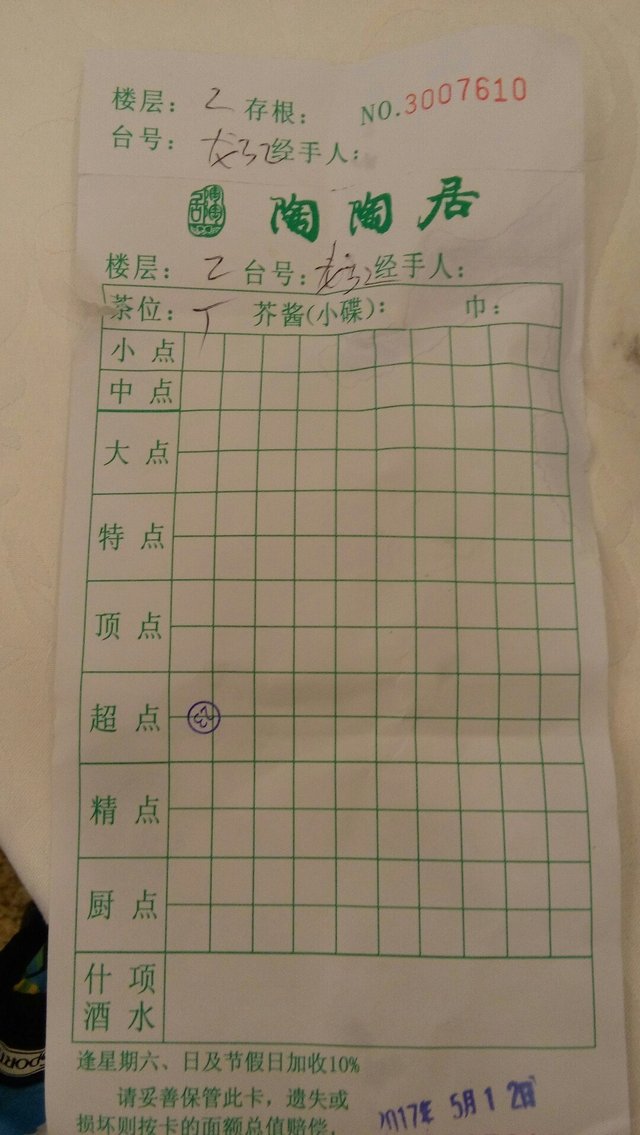 楼层： 2 存根： NO.3007610
台号： 龙 经手人：
陶陶居 陶陶居
楼层： 2 台号： 龙 经手人：
茶位： 芥酱(小碟)： 巾：
小点
中点
大点
特点
顶点
超点
精点
厨点
什项
酒水
逢星期六、日及节假日加收10%
请妥善保管此卡，遗失或
损坏则按卡的面额总值赔偿． 2017年 5月12日